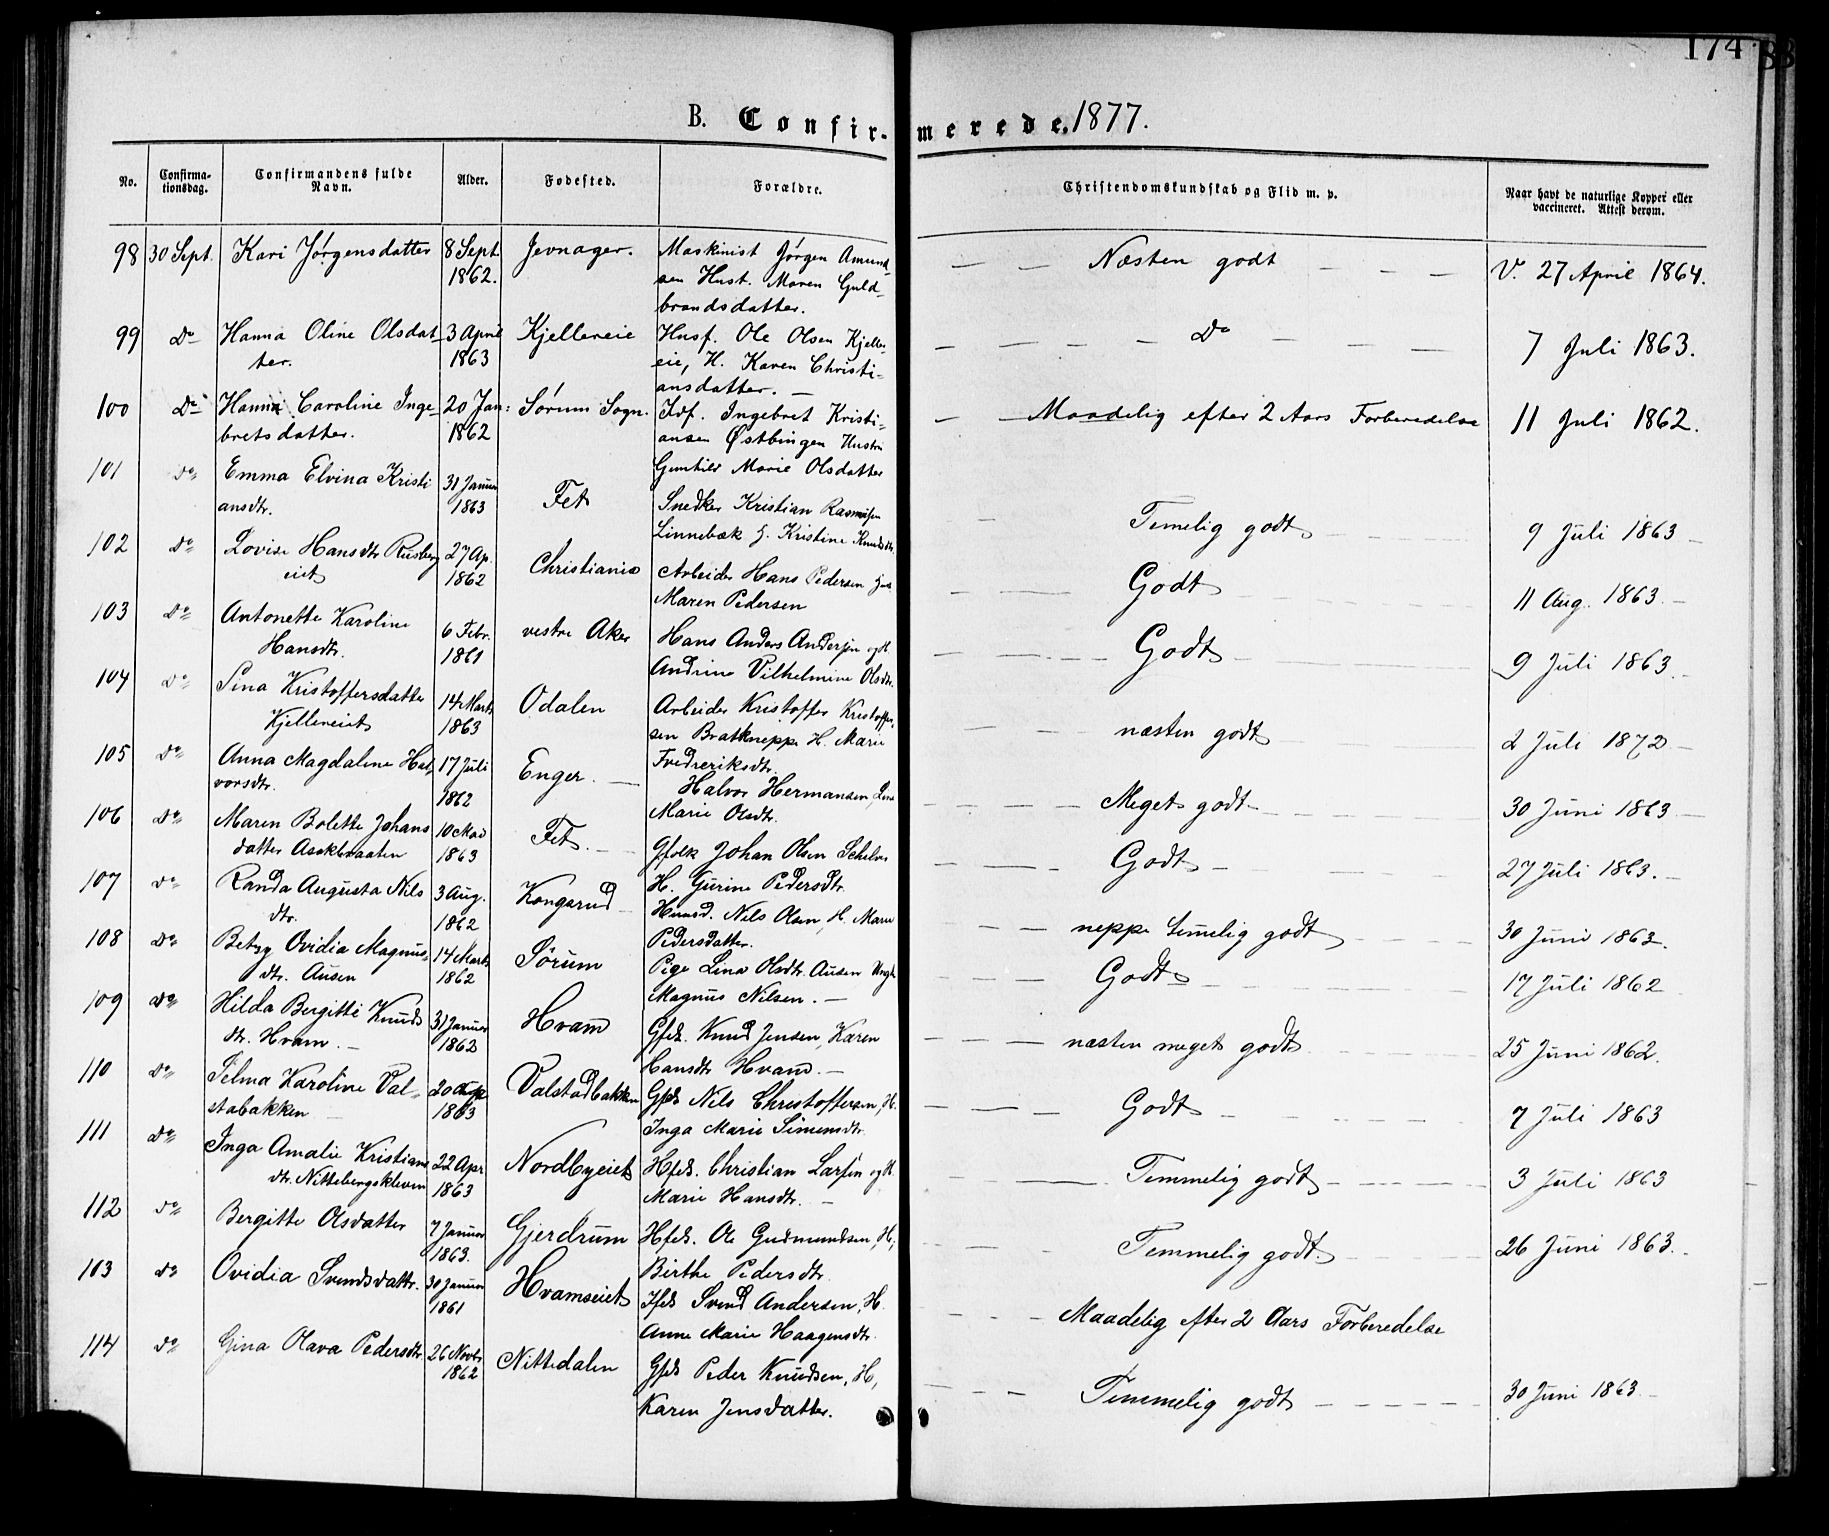 174
B. Confirmerede. 1877.
No. Confirmationsdag. Confirmandens fulde Navn. Alder. Fødested. Forældre. Christendomskundskab og Flid m. v. Naar havt de naturlige Kopper eller vaccineret. Attest derom.
98 30 Sept. Kari Jørgensdatter 8 Sept. Jevnager. Maskinist Jørgen Amund- — — Næsten godt — — — V. 27 April 1864.
1862. sen Hust. Maren Guld-
brandsdatter.
99 Do Hanna Oline Olsdat- 3 April Kjellereie Husf. Ole Olsen Kjeller- — — — — Do — — — 7 Juli 1863.
ter. 1863 eie, H. Karen Christi-
ansdatter. —
100 Do Hanna Caroline Inge- 20 Jan: Sørum Sogn. Idf. Ingebret Kristi- — Maadelig efter 2 Aars Forberedelse 11 Juli 1862.
bretsdatter. 1862 ansen Østbingen Hustru
Gunhild Marie Olsdatter
101 Do Emma Elvina Kristi 31 Januar Fet Snedker Kristian Rasmusen — Temelig godt 9 Juli 1863 —
ansdtr. 1863 Linnebæk H. Kristine Knudsdtr.
102 Do Lovise Hansdtr Rusberg 27 Ap. Christiania Arbeider Hans Pedersen — Godt 11 Aug. 1863. —
eiet 1862 Maren Pedersen
103 Do Antonette Karoline 6 Febr. vestre Aker Hans Anders Andersen og H. — Godt — 9 Juli 1863. —
Hansdtr. 1861 Andrine Vilhelmine Olsdtr.
104 Do Sina Kristoffersdatter 14 Marts Odalen Arbeider Kristoffer Kristoffer- — næsten godt 2 Juli 1872 —
Kjellereiet 1863 sen Bratkneppe H. Marie
Fredreriksdtr.
105 Do Anna Magdalene Hal- 17 Juli Enger. — Halvor Hermansen, — Meget godt — 30 Juni 1863 —
vorsdtr. 1862 Marie Olsdtr.
106 Do Maren Bolette Johans 10 Mai Fet. — Gfolk Johan Olsen — Godt — 27 Juli 1863. —
datter Aaskbraaten 1863 H. Gurine Pedersdtr.
107 Do Randa Augusta Nils 3 Aug. Kongsrud Husmd. Nils Olsen, H. Maren — neppe temelig godt 30 Juni 1863.
dtr. 1862 Pedersdatter.
108 Do Betzy Ovidia Magnus- 14 Marts Sørum Pige Lina Olsdtr. Ausen Ungk — Godt 17 Juli 1862
dtr. Ausen 1862 Magnus Nilsen. —
109 Do Hilda Bergitte Knuds 31 Januar Hvam Gfd. Knud Jensen, Karen — næsten meget godt 25 Juni 1862.
dtr. Hvam. — 1862 Hansdtr Hvam. —
110 Do Selma Karoline Val- 20 Valstadbakken Gfd Nils Christoffersen, H. — Godt 7 Juli 1863
stabakken 1863 Inga Marie Simensdtr.
111 Do Inga Amalie Kristians 22 Apr Nordbyeiet Hfd. Christian Larsen og H — Temmelig godt — 3 Juli 1863
dtr. Nittebergskleven 1863 Marie Hansdtr. —
112 Do Bergitte Olsdatter 7 Januar Gjerdrum Hfd. Ole Gudmundsen, H, — Temmelig godt. 26 Juni 1863. —
1863. Birthe Pedersdtr.
103 Do Ovidia Svendsdattr. 30 Januar Hvamseiet Svend Andersen, H. — Maadelig efter 2 Aars Forberedelse
1861 Anne Marie Haagensdtr.
114 Do Gina Olava Pedersdtr. 26 Novbr. Nittedalen Gfd Peder Knudsen, H, — Temmelig godt — 30 Juni 1863. —
1862 Karen Jensdatter.